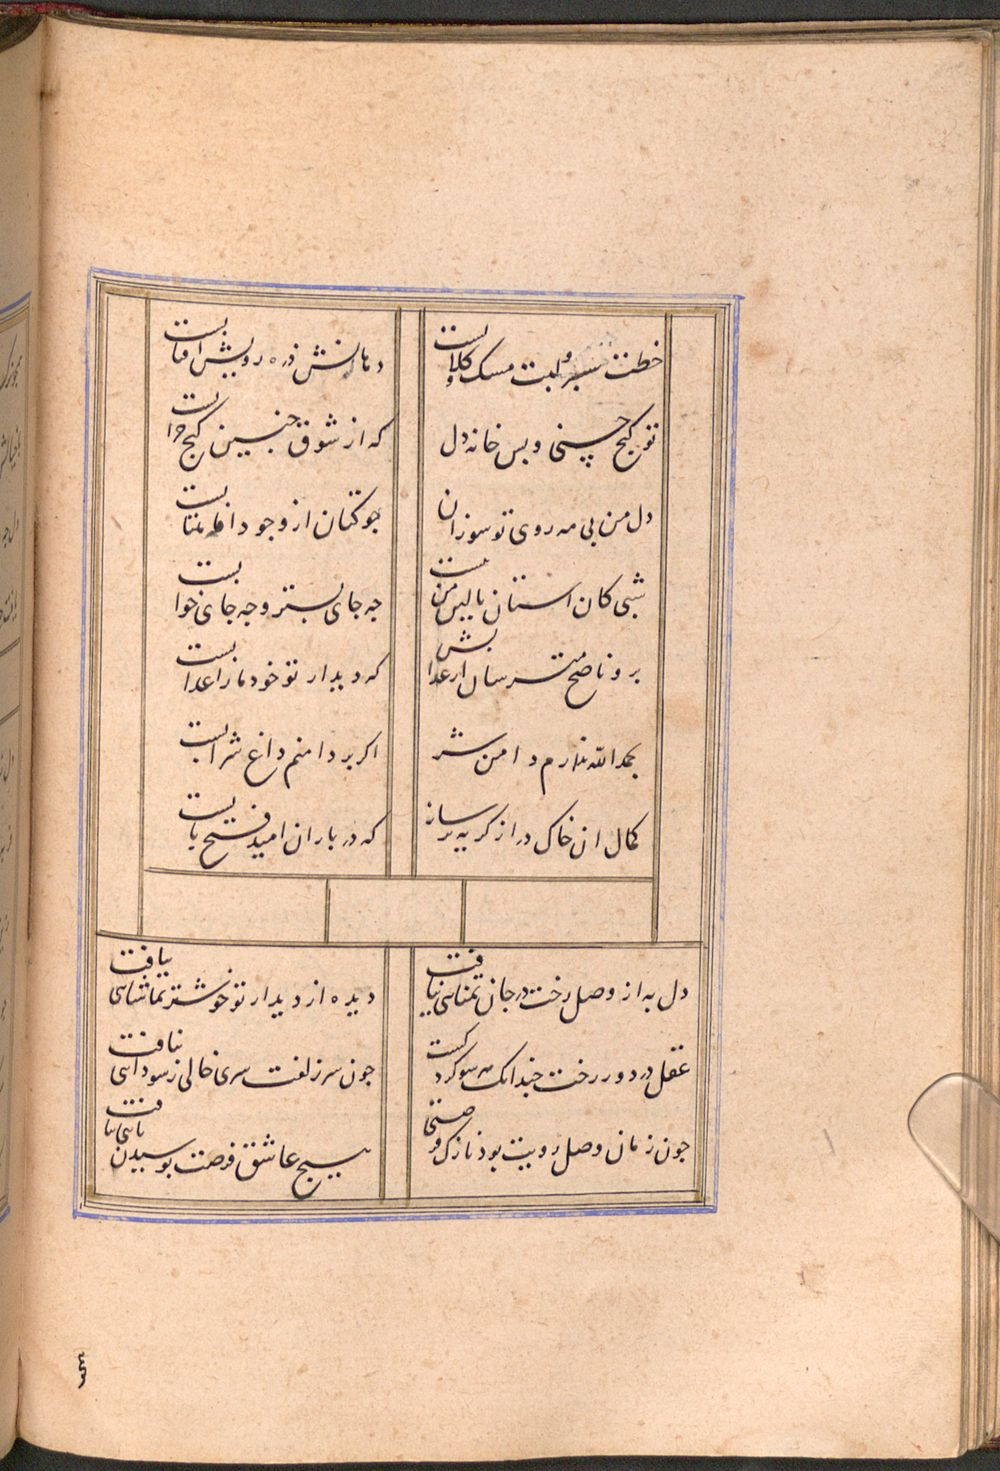 خطت سبز و لبت مسک و کلابست
دهانش ذره رویش افتابست
تو کنج حسنی و بس خانه دل
که از شوق جنین کنج خرابست
دل من بی مه روی تو سوزان
جو کتان از وجود ماهتابست
شبی کان استان بالین من نیست
جه جای بستر و جه جای خوابست
برو ناصح مترسان از عذابش
که دیدار تو خود ما را عذابست
بحمدالله ندارم دامن تر
اکر بر دامنم داغ شرابست
کمال ان خاک در از کریه تر ساز
که در باران امید فتح بابست
دل به از وصل رخت در جان تمنایی نیافت
دیده از دیدار تو خوشتر تماشایی نیافت
عقل در دور رخت جندانک هر سو کرد کشت
جون سر زلفت سری خالی ز سودایی نیافت
جون زمان وصل رویت بود نازک فرصتی
هیج عاشق فرصت بوسیدن پایی نیافت